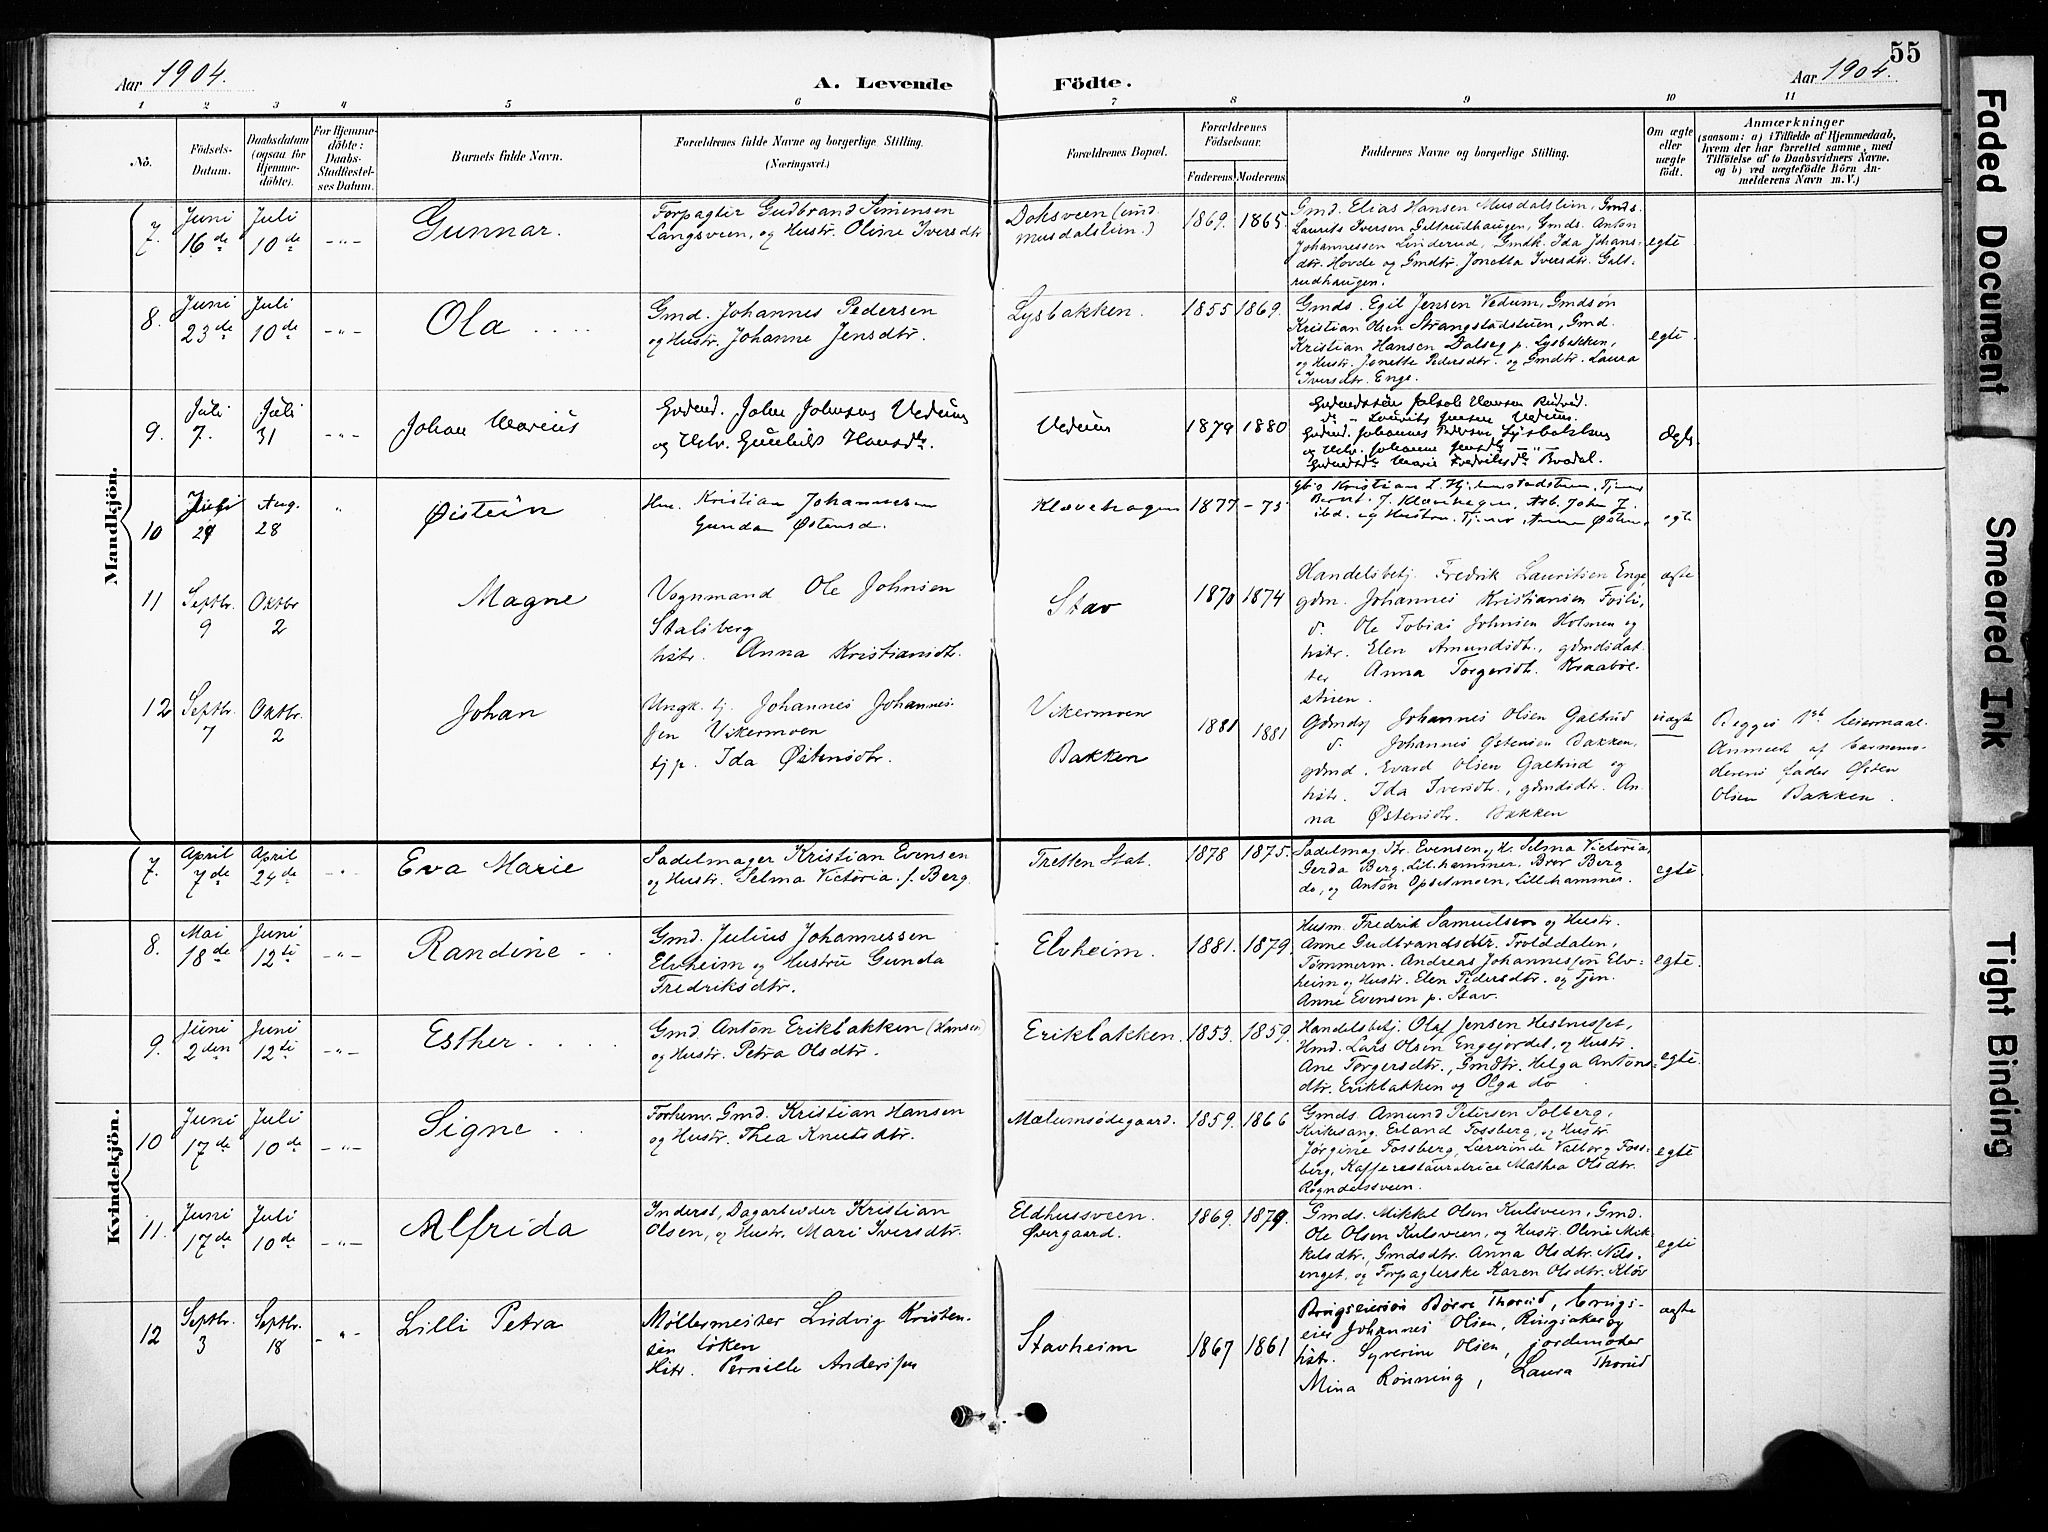 55
Aar 1904.
A. Levende Födte.
Aar 1904.
1 2 3 4 5 6 7 8 9 10 11
No.
Födsels-Datum.
Daabsdatum (ogsaa for Hjemme-döbte).
For Hjemme-döbte: Daabs-Stadfæstel-ses Datum.
Barnets fulde Navn.
Forældrenes fulde Navne og borgerlige Stilling. (Næringsvei.)
Forældrenes Bopæl.
Forældrenes Födselsaar.
Faderens Moderens
Faddernes Navne og borgerlige Stilling.
Om ægte eller uægte födt.
Anmærkninger
(saasom: a) i Tilfælde af Hjemmedaab, hvem der har forrettet samme, med Tilföielse af to Daabsvidners Navne, og b) ved uægtefödte Börn Anmelderens Navn m. V.)
Mandkjön.
7. Juni 16de Juli 10de -"- Gunnar.
Forpagter Gudbrand Simensen
Langsveen, og Hustr. Oline Iversdtr
Doksveen (und. Musdalslien.) 1869. 1865.
Gmd. Elias Hansen Musdalslien, Gmds.
Laurits Iversen Galtrudhaugen, Gmds. Anton
Johannessen Linderud, Gmdk. Ida Johans-
dtr. Hovde og Gmdtr. Jonetta Iversdtr. Galt-
rudhaugen.
egte
8. Juni 23de Juli 10de -"- Ola ....
Gmd. Johannes Pedersen
og Hustr. Johanne Jensdtr.
Lysbakken. 1855 1869.
Gmds. Egil Jensen Vedum, Gmdsøn
Kristian Olsen Strangstadstuen, Gmd.
Kristian Hansen Dalseg p. Lysbakken,
og Hustr. Jonette Pedersdtr. og Gmdtr. Laura
Iversdtr. Enge.
egte.
9. Juli 7. Juli 31 -"- Johan Marius
Gudmd. John Johnsen Vedum
og Hstr. Gunhild Hansdtr.
Vedum 1879 1880
Jakob Hansen
Laurits Jensen Vedum.
Johannes Pedersen Lysbakken
og Hstr. Johanne Jensdtr
Marie Fredriksdtr Brodal.
Ægte
10 Juli 29 Aug. 28 " Øistein
Hm. Kristian Johannesen
Gunda Østensd.
Klævehagen 1877 -75
egte
11 Septbr. 9 Oktbr 2 Magne
Vognmand Ole Johnsen
Stalsberg
hstr. Anna Kristiansdtr.
Stav 1870 1874
Handelsbetj. Fredrik Lauritsen Enge,
gdm. Johannes Kristiansen Fosli,
d. Ole Tobias Johnsen Holmen og
hstr. Elen Amundsdtr., gdmdsdat-
ter Anna Torgersdtr. Kraabøl-
stuen.
ægte
12 Septbr. 7 Oktbr. 2 Johan
Ungk. tj. Johannes Johannes-
sen Vikermoen
tj p. Ida Østensdtr.
Vikermoen
Bakken
1881 1881
Gdmds Johannes Olsen Galtrud
d. Johannes Østensen Bakken,
gdmd. Evard Olsen Galtrud og
hstr. Ida Iversdtr., gdmdsdtr. An-
na Østensdtr. Bakken
uægte
Begges 1ste leiermaal.
Anmeldt af barnemo-
derens fader Østen
Olsen Bakken.
Kvindekjön.
7. April 7de April 24de -"- Eva Marie
Sadelmager Kristian Evensen
og Hustr. Selma Victoria f. Berg.
Tretten Stat. 1878 1875.
Sadelmag. Kr. Evensen og H. Selma Victoria,
Gerda Berg, Lillehammer, Bror Berg
do, og Anton Opsetmoen, Lillehammer.
egte.
8. Mai 18de Juni 12te -"- Randine ..
Gmd. Julius Johannessen
Elvheim og Hustru Gunda
Fredriksdtr.
Elvheim. 1881. 1879.
Husm. Fredrik Samuelsen og Hustr.
Anne Gudbrandsdtr. Trolddalen,
Tømmerm. Andreas Johannessen Elv-
heim og Hustr. Elen Pedersdtr. og Tjen.
Anne Evensen p. Stav.
egte.
9. Juni 2den Juni 12te -"- Esther ....
Gmd. Anton Erikbakken (Hansen)
og Hustr. Petra Olsdtr.
Erikbakken. 1853. 1859.
Handelsbetj. Olaf Jensen Hestnesset,
Hmd. Lars Olsen Engejordet, og Hustr.
Ane Torgersdtr., Gmdtr. Helga Antons-
dtr. Erikbakken og Olga do
egte.
10 Juni 17de Juli 10de -"- Signe ..
Forhenv. Gmd. Kristian Hansen
og Hustr. Thea Knutsdtr.
Malumsødegaard. 1859. 1866
Gmds. Amund Petersen Solberg,
Kirkesang. Erland Fossberg, og Hustr.
Jørgine Fossberg, Lærerinde Valborg Foss-
berg, Kafferestauratrice Mathea Olsdtr.
Rogndelssveen.
egte
11. Juni 17de Juli 10de -"- Alfrida
Inderst, Dagarbeider Kristian
Olsen, og Hustr. Mari Iversdtr.
Eldhussveen.
Øvergaard.
1869. 1879.
Gmds. Mikkel Olsen Kulsveen, Gmd.
Ole Olsen Kulsveen, og Hustr. Oline Mik-
kelsdtr., Gmdsdtr. Anna Olsdtr. Nils-
enget, og Forpagterske Karen Olsdtr. Kløv
egte
12 Septbr. 3 Septbr. 18 -"- Lilli Petra
Møllermester Ludvig Kristen-
sen Løken
Hstr. Pernille Anderssen
Stavheim 1867 1861
Brugseiersøn Børre Thorud, brugs-
eier Johannes Olsen, Ringsaker og
hstr. Syverine Olsen, jordemoder
Mina Rønning, Laura Thorud
ægte
Faded Document
Smeared Ink
Tight Binding